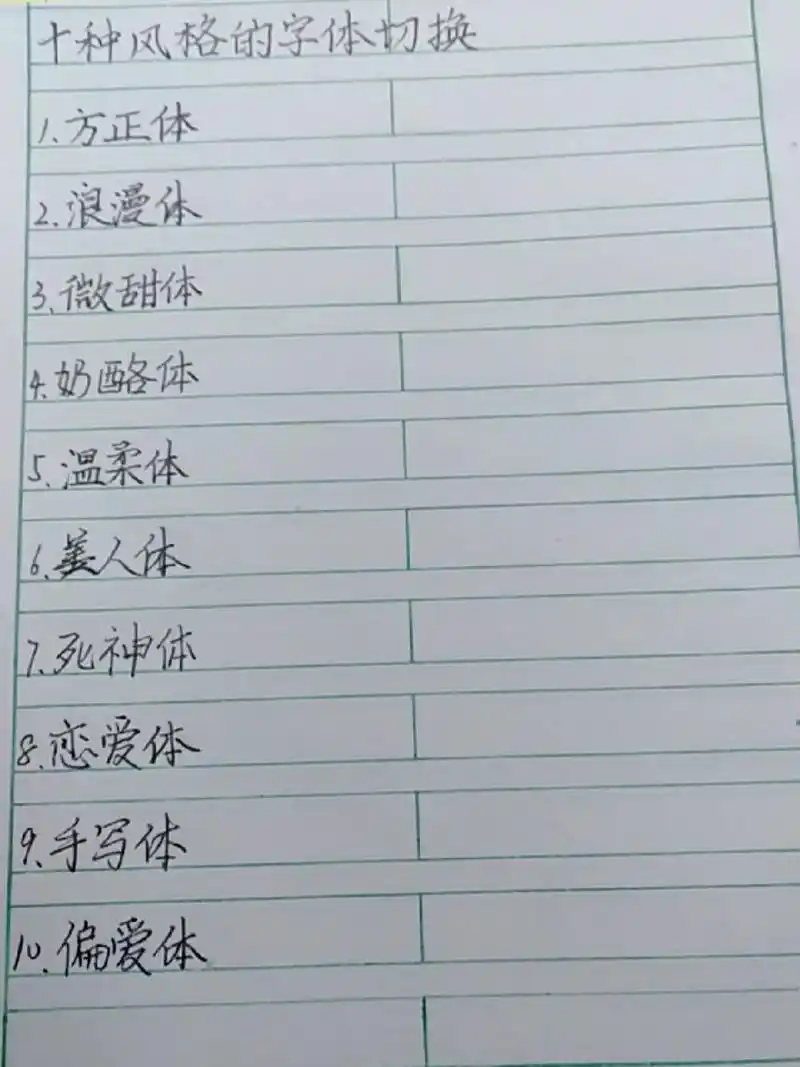 十种风格的字体切换
1.方正体
2.浪漫体
3.微甜体
4.奶酪体
5.温柔体
6.美人体
7.死神体
8.恋爱体
9.手写体
10.偏爱体